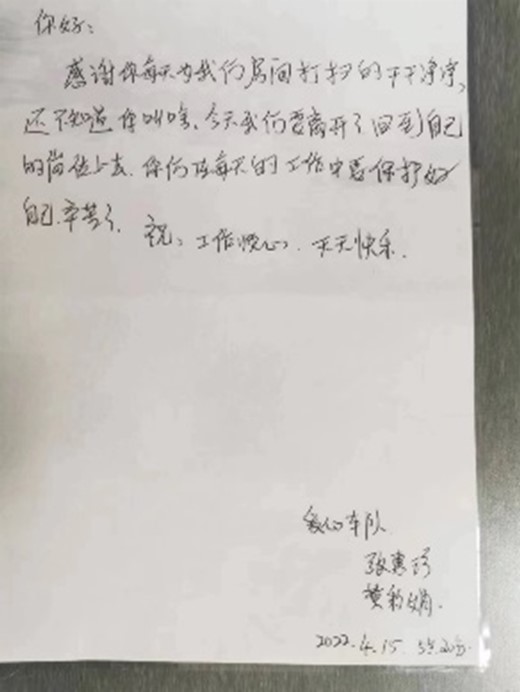 你好:
感谢你每天为我们房间打扫的干干净净,
还不知道你叫啥、今天我们要离开了回到自己
的岗位上去.你们在每天的工作中要保护好
自己.辛苦了. 祝: 工作顺心. 天天快乐.
爱心车队
张惠
黄
2022.4.15.